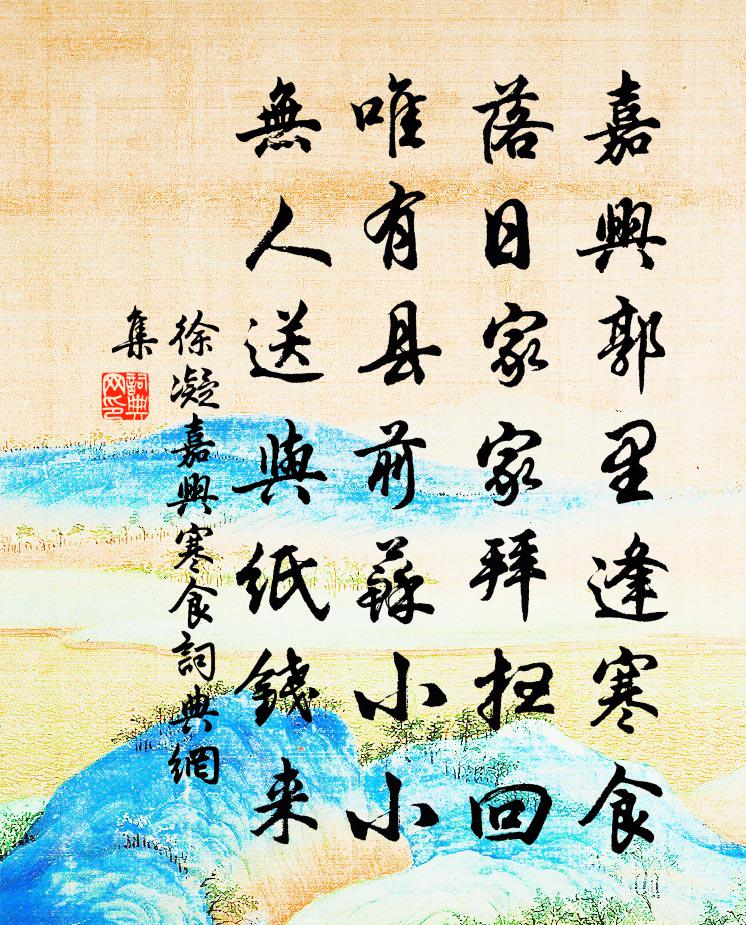 嘉興郭里逢寒食
落日家家拜扫回
唯有县前蘇小小
無人送與纸錢来
徐凝嘉興寒食詞典網
集
詞典
网印